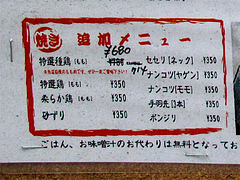 焼き 追加メニュー
¥680
特選種鶏(もも) ¥350
特選鶏(もも) ¥350
柔らか鶏(もも) ¥350
ずり ¥350
セセリ[ネック] ¥350
ナンコツ[ヤゲン] ¥350
ナンコツ[モモ] ¥350
手羽先[1本] ¥350
ボンジリ ¥350
ごはん、お味噌汁のお代わりは無料となってお